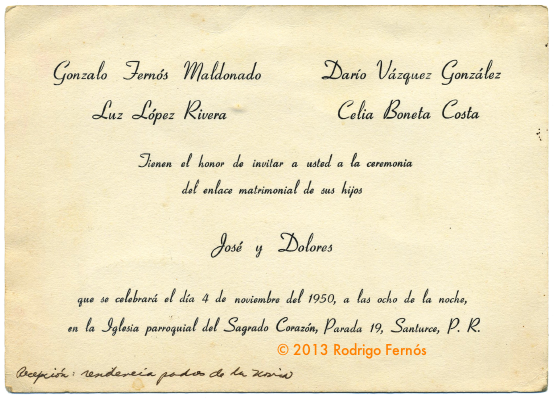 Gonzalo Fernós Maldonado
Luz López Rivera
Darío Vázquez González
Celia Boneta Costa
Tienen el honor de invitar a usted a la ceremonia
del enlace matrimonial de sus hijos
José y Dolores
que se celebrará el día 4 de noviembre del 1950, a las ocho de la noche,
en la Iglesia parroquial del Sagrado Corazón, Parada 19, Santurce, P. R.
© 2013 Rodrigo Fernós
Recepción: de la novia